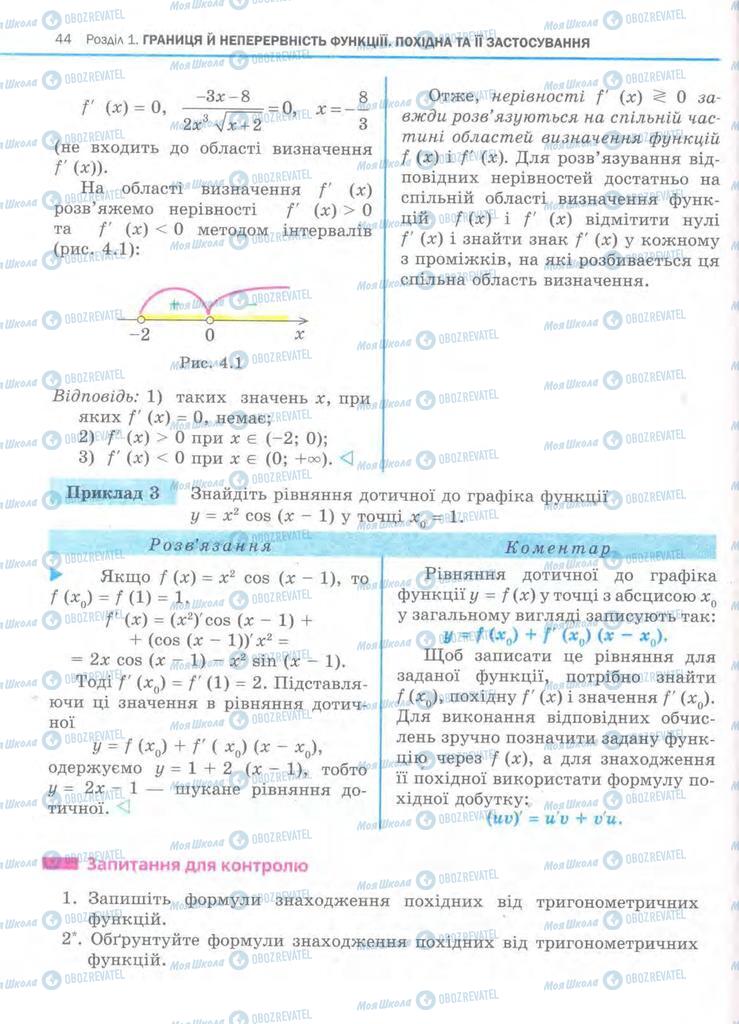 44 Розділ 1. ГРАНИЦЯ Й НЕПЕРЕРВНІСТЬ ФУНКЦІЇ. ПОХІДНА ТА ЇЇ ЗАСТОСУВАННЯ
f′ (x) = 0, (−3x−8)/(2x³ √(x+2)) = 0, x = −8/3
(не входить до області визначення
f′ (x)).
На області визначення f′ (x)
розв’яжемо нерівності f′ (x) > 0
та f′ (x) < 0 методом інтервалів
(рис. 4.1):
+ −
−2 0 x
Рис. 4.1
Відповідь: 1) таких значень x, при
яких f′ (x) = 0, немає;
2) f′ (x) > 0 при x ∈ (−2; 0);
3) f′ (x) < 0 при x ∈ (0; +∞). ◁
Отже, нерівності f′ (x) ≷ 0 за-
вжди розв’язуються на спільній час-
тині областей визначення функцій
f (x) і f′ (x). Для розв’язування від-
повідних нерівностей достатньо на
спільній області визначення функ-
цій f (x) і f′ (x) відмітити нулі
f′ (x) і знайти знак f′ (x) у кожному
з проміжків, на які розбивається ця
спільна область визначення.
Приклад 3 Знайдіть рівняння дотичної до графіка функції
y = x² cos (x − 1) у точці x₀ = 1.
Розв’язання
Якщо f (x) = x² cos (x − 1), то
f (x₀) = f (1) = 1.
f′ (x) = (x²)′cos (x − 1) +
+ (cos (x − 1))′ x² =
= 2x cos (x − 1) − x² sin (x − 1).
Тоді f′ (x₀) = f′ (1) = 2. Підставля-
ючи ці значення в рівняння дотич-
ної
y = f (x₀) + f′ ( x₀) (x − x₀),
одержуємо y = 1 + 2 (x − 1), тобто
y = 2x − 1 — шукане рівняння до-
тичної. ◁
Коментар
Рівняння дотичної до графіка
функції y = f (x) у точці з абсцисою x₀
у загальному вигляді записують так:
y = f (x₀) + f′ (x₀) (x − x₀).
Щоб записати це рівняння для
заданої функції, потрібно знайти
f (x₀), похідну f′ (x) і значення f′ (x₀).
Для виконання відповідних обчис-
лень зручно позначити задану функ-
цію через f (x), а для знаходження
її похідної використати формулу по-
хідної добутку:
(uv)′ = u′v + v′u.
Запитання для контролю
1. Запишіть формули знаходження похідних від тригонометричних
функцій.
2*. Обґрунтуйте формули знаходження похідних від тригонометричних
функцій.